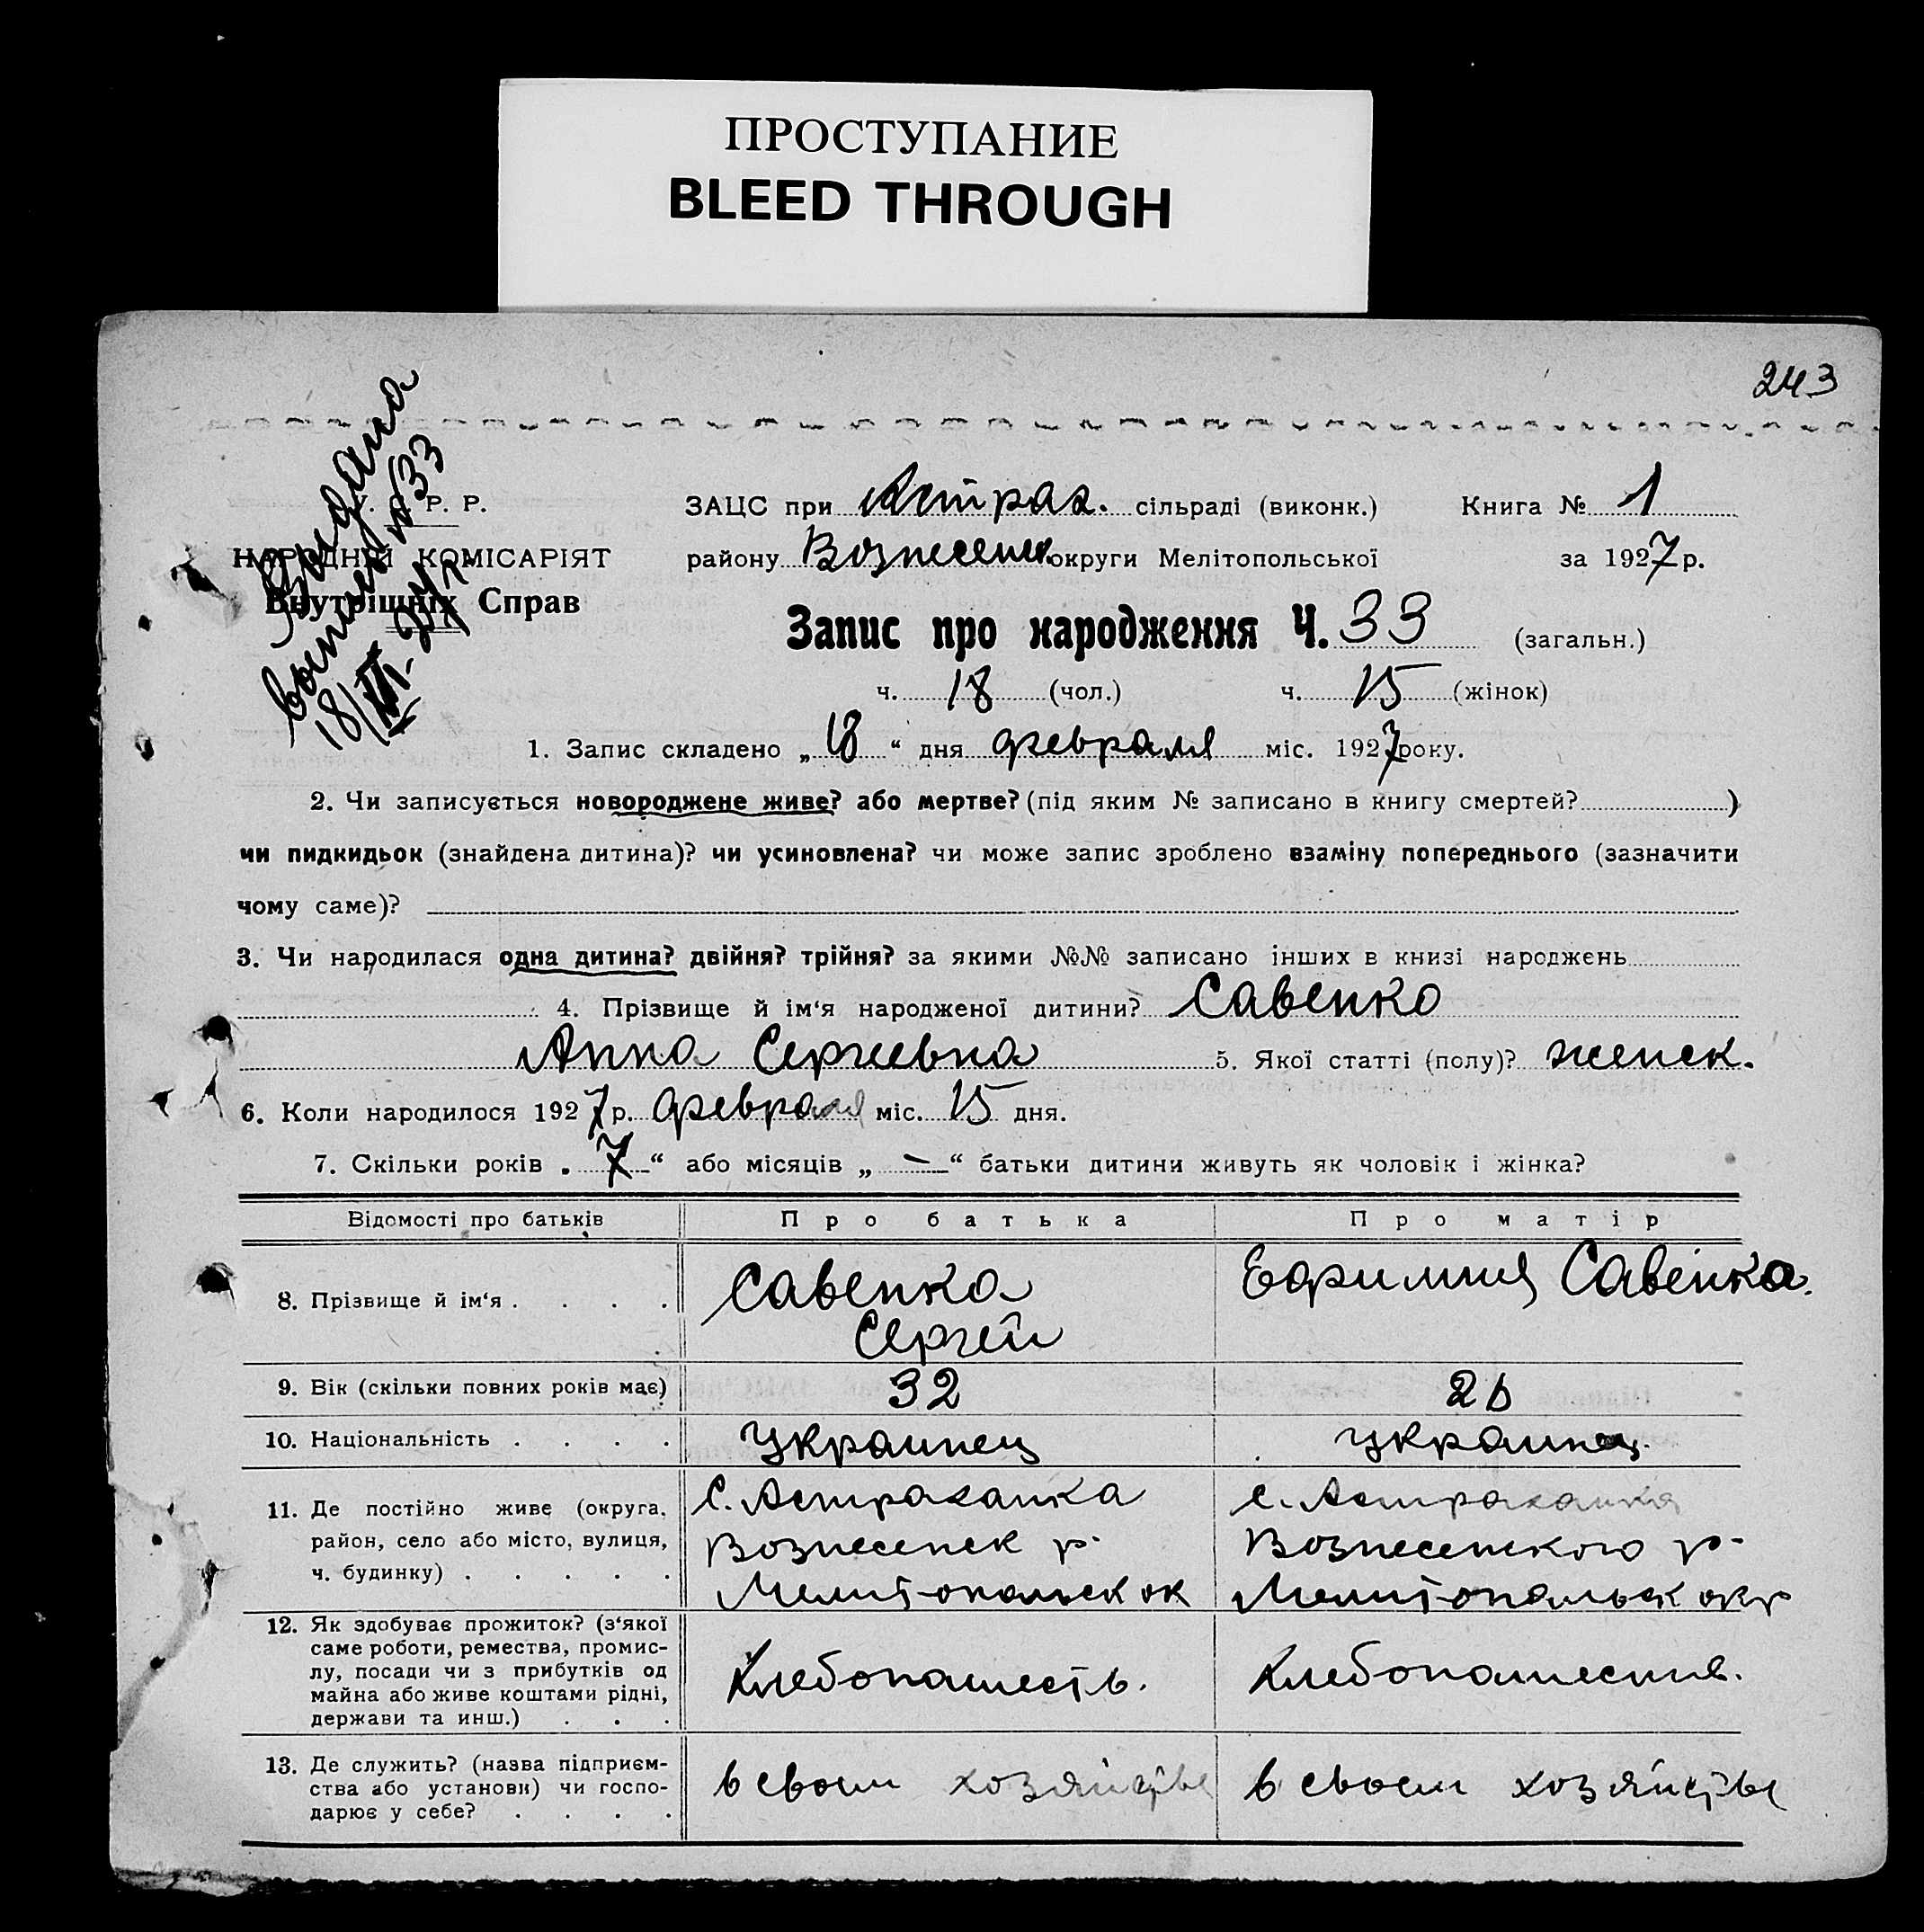 ПРОСТУПАНИЕ
BLEED THROUGH
243
Видана
выпись №33
18/VI-27 г.
У. С. Р. Р.
НАРОДНІЙ КОМІСАРІЯТ
Внутрішніх Справ
ЗАЦС при Астрах. сільраді (виконк.) Книга № 1
району Вознесенск. округи Мелітопольської за 1927 р.
Запис про народження Ч. 33 (загальн.)
ч. 18 (чол.) ч. 15 (жінок)
1. Запис складено „ 18 “ дня февраля міс. 1927 року.
2. Чи записується новороджене живе? або мертве? (під яким № записано в книгу смертей? )
чи пидкидьок (знайдена дитина)? чи усиновлена? чи може запис зроблено взаміну попереднього (зазначити
чому саме)?
3. Чи народилася одна дитина? двійня? трійня? за якими №№ записано інших в книзі народжень
4. Прізвище й ім‘я народженої дитини? Савенко
Анна Сергеевна 5. Якої статті (полу)? женск.
6. Коли народилося 1927 р. февраля міс. 15 дня.
7. Скільки років „ 7 “ або місяців „ — “ батьки дитини живуть як чоловік і жінка?
Відомості про батьків Про батька Про матір
8. Прізвище й ім‘я . . . . Савенко Ефимия Савенко.
Сергей
9. Вік (скільки повних років має) 32 26
10. Національність . . . . Украинец Украинец.
11. Де постійно живе (округа, с. Астраханка с. Астраханка
район, село або місто, вулиця, Вознесенск р. Вознесенкого р.
ч. будинку) . . . . . Мелитопольск ок Мелитопольск окр
12. Як здобуває прожиток? (з‘якої
саме роботи, ремества, промис-
лу, посади чи з прибутків од Хлебопашеств. Хлебопашеств.
майна або живе коштами рідні,
держави та инш.) . . .
13. Де служить? (назва підприєм-
ства або установи) чи госпо- в своем хозяйстве в своем хозяйстве
дарює у себе? . . . .